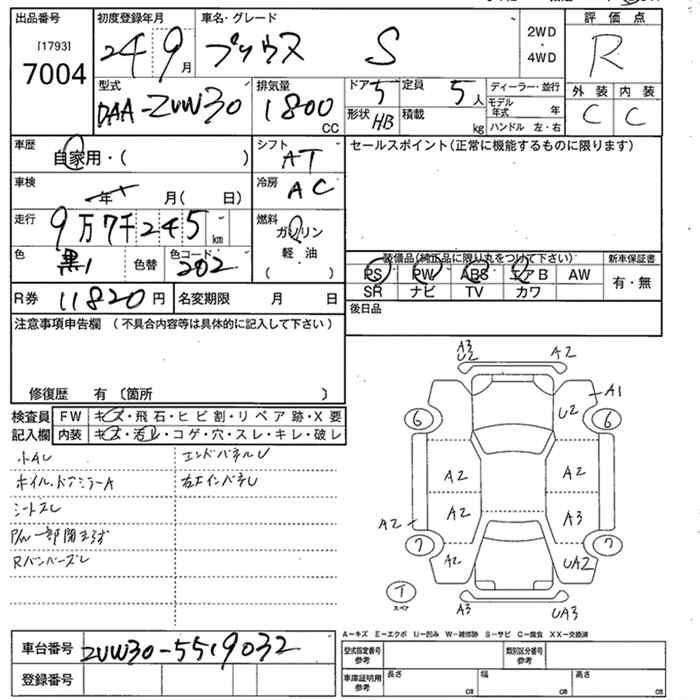 出品番号
[1793]
7004
初度登録年月
24 9 月
車名・グレード
プリウス S
2WD
・
4WD
評価点
R
型式
DAA-ZVW30
排気量
1800 CC
ドア 5
定員 5 人
形状 HB
積載 kg
ディーラー・並行
モデル年式 年
ハンドル 左・右
外装 内装
C C
車歴
自家用・( )
シフト
AT
セールスポイント(正常に機能するものに限ります)
車検
年 月( 日)
冷房
AC
走行
9万7千245 km
燃料
ガソリン
軽・油
( )
色
黒
色替
色コード
202
装備品(純正品に限り丸をつけて下さい)
新車保証書
PS PW ABS エアB AW
有・無
SR ナビ TV カワ
R券 11820 円
名変期限 月 日
後日品
注意事項申告欄 (不具合内容等は具体的に記入して下さい)
修復歴 有 〔箇所 〕
検査員
記入欄
FW キズ・飛石・ヒビ割・リペア跡・X要
内装 キズ・汚レ・コゲ・穴・スレ・キレ・破レ
小AU
エンドパネルU
ホイル、ドアミラーA
右エインパネU
シートスレ
P/W一部閉まらず
Rバンパーズレ
A3
U2
A2
A1
U2
6 6
A2 A2
A2 A3
A2
7 7
A2 UA2
T
スペア
A3 UA3
A－キズ E－エクボ U－凹み W－補修跡 S－サビ C－腐食 XX－交換済
車台番号 ZVW30-5519032
登録番号
型式指定番号
参考
類別区分番号
参考
車庫証明用
参考
長さ cm
幅 cm
高さ cm